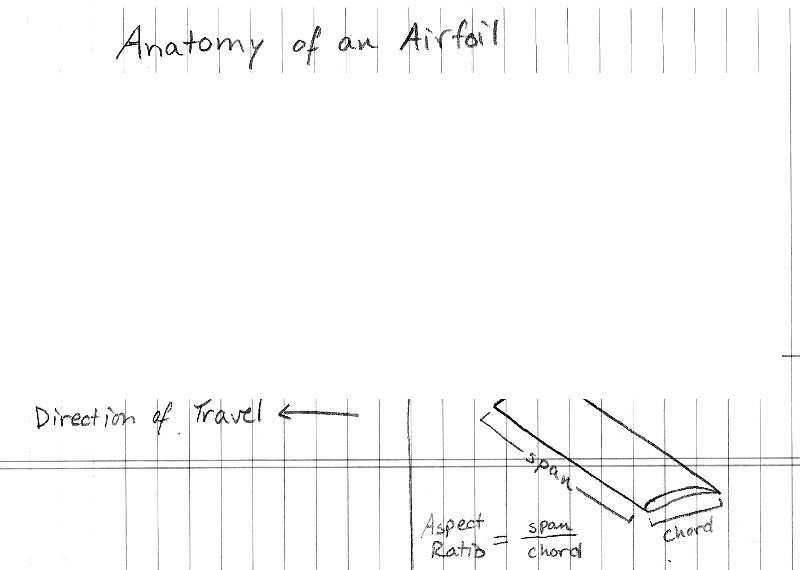 Anatomy of an Airfoil
Direction of Travel
span
chord
Aspect Ratio = span / chord